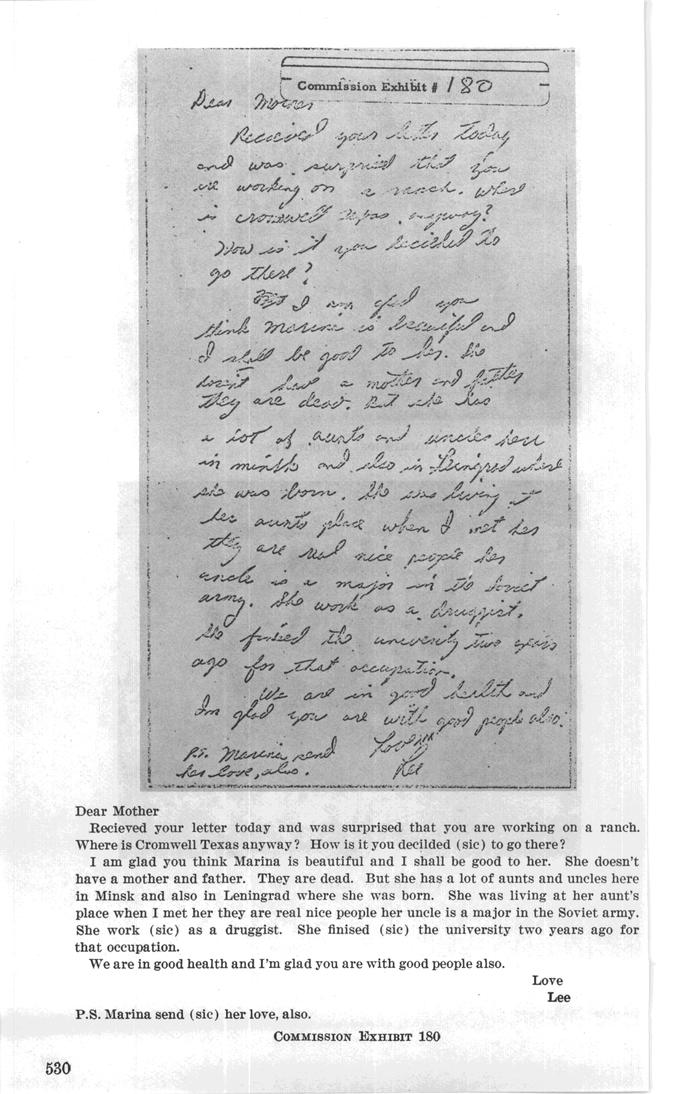 Commission Exhibit # 180
Dear Mother
Recieved your letter today
and was surprised that you
are working on a ranch. Where
is Cromwell Texas anyway?
How is it you decilded to
go there?
But I am glad you
think Marina is beautiful and
I shall be good to her. She
doesn't have a mother and father
they are dead. But she has
a lot of aunts and uncles here
in Minsk and also in Leningrad where
she was born. She was living at
her aunts place when I met her
they are real nice people her
uncle is a major in the Soviet
army. She work as a druggist.
She finised the university two years
ago for that occupation.
We are in good health and
I'm glad you are with good people also.
Love
Lee
P.S. Marina send
her love, also.
Dear Mother
Recieved your letter today and was surprised that you are working on a ranch.
Where is Cromwell Texas anyway? How is it you decilded (sic) to go there?
I am glad you think Marina is beautiful and I shall be good to her. She doesn't
have a mother and father. They are dead. But she has a lot of aunts and uncles here
in Minsk and also in Leningrad where she was born. She was living at her aunt's
place when I met her they are real nice people her uncle is a major in the Soviet army.
She work (sic) as a druggist. She finised (sic) the university two years ago for
that occupation.
We are in good health and I'm glad you are with good people also.
Love
Lee
P.S. Marina send (sic) her love, also.
COMMISSION EXHIBIT 180
530